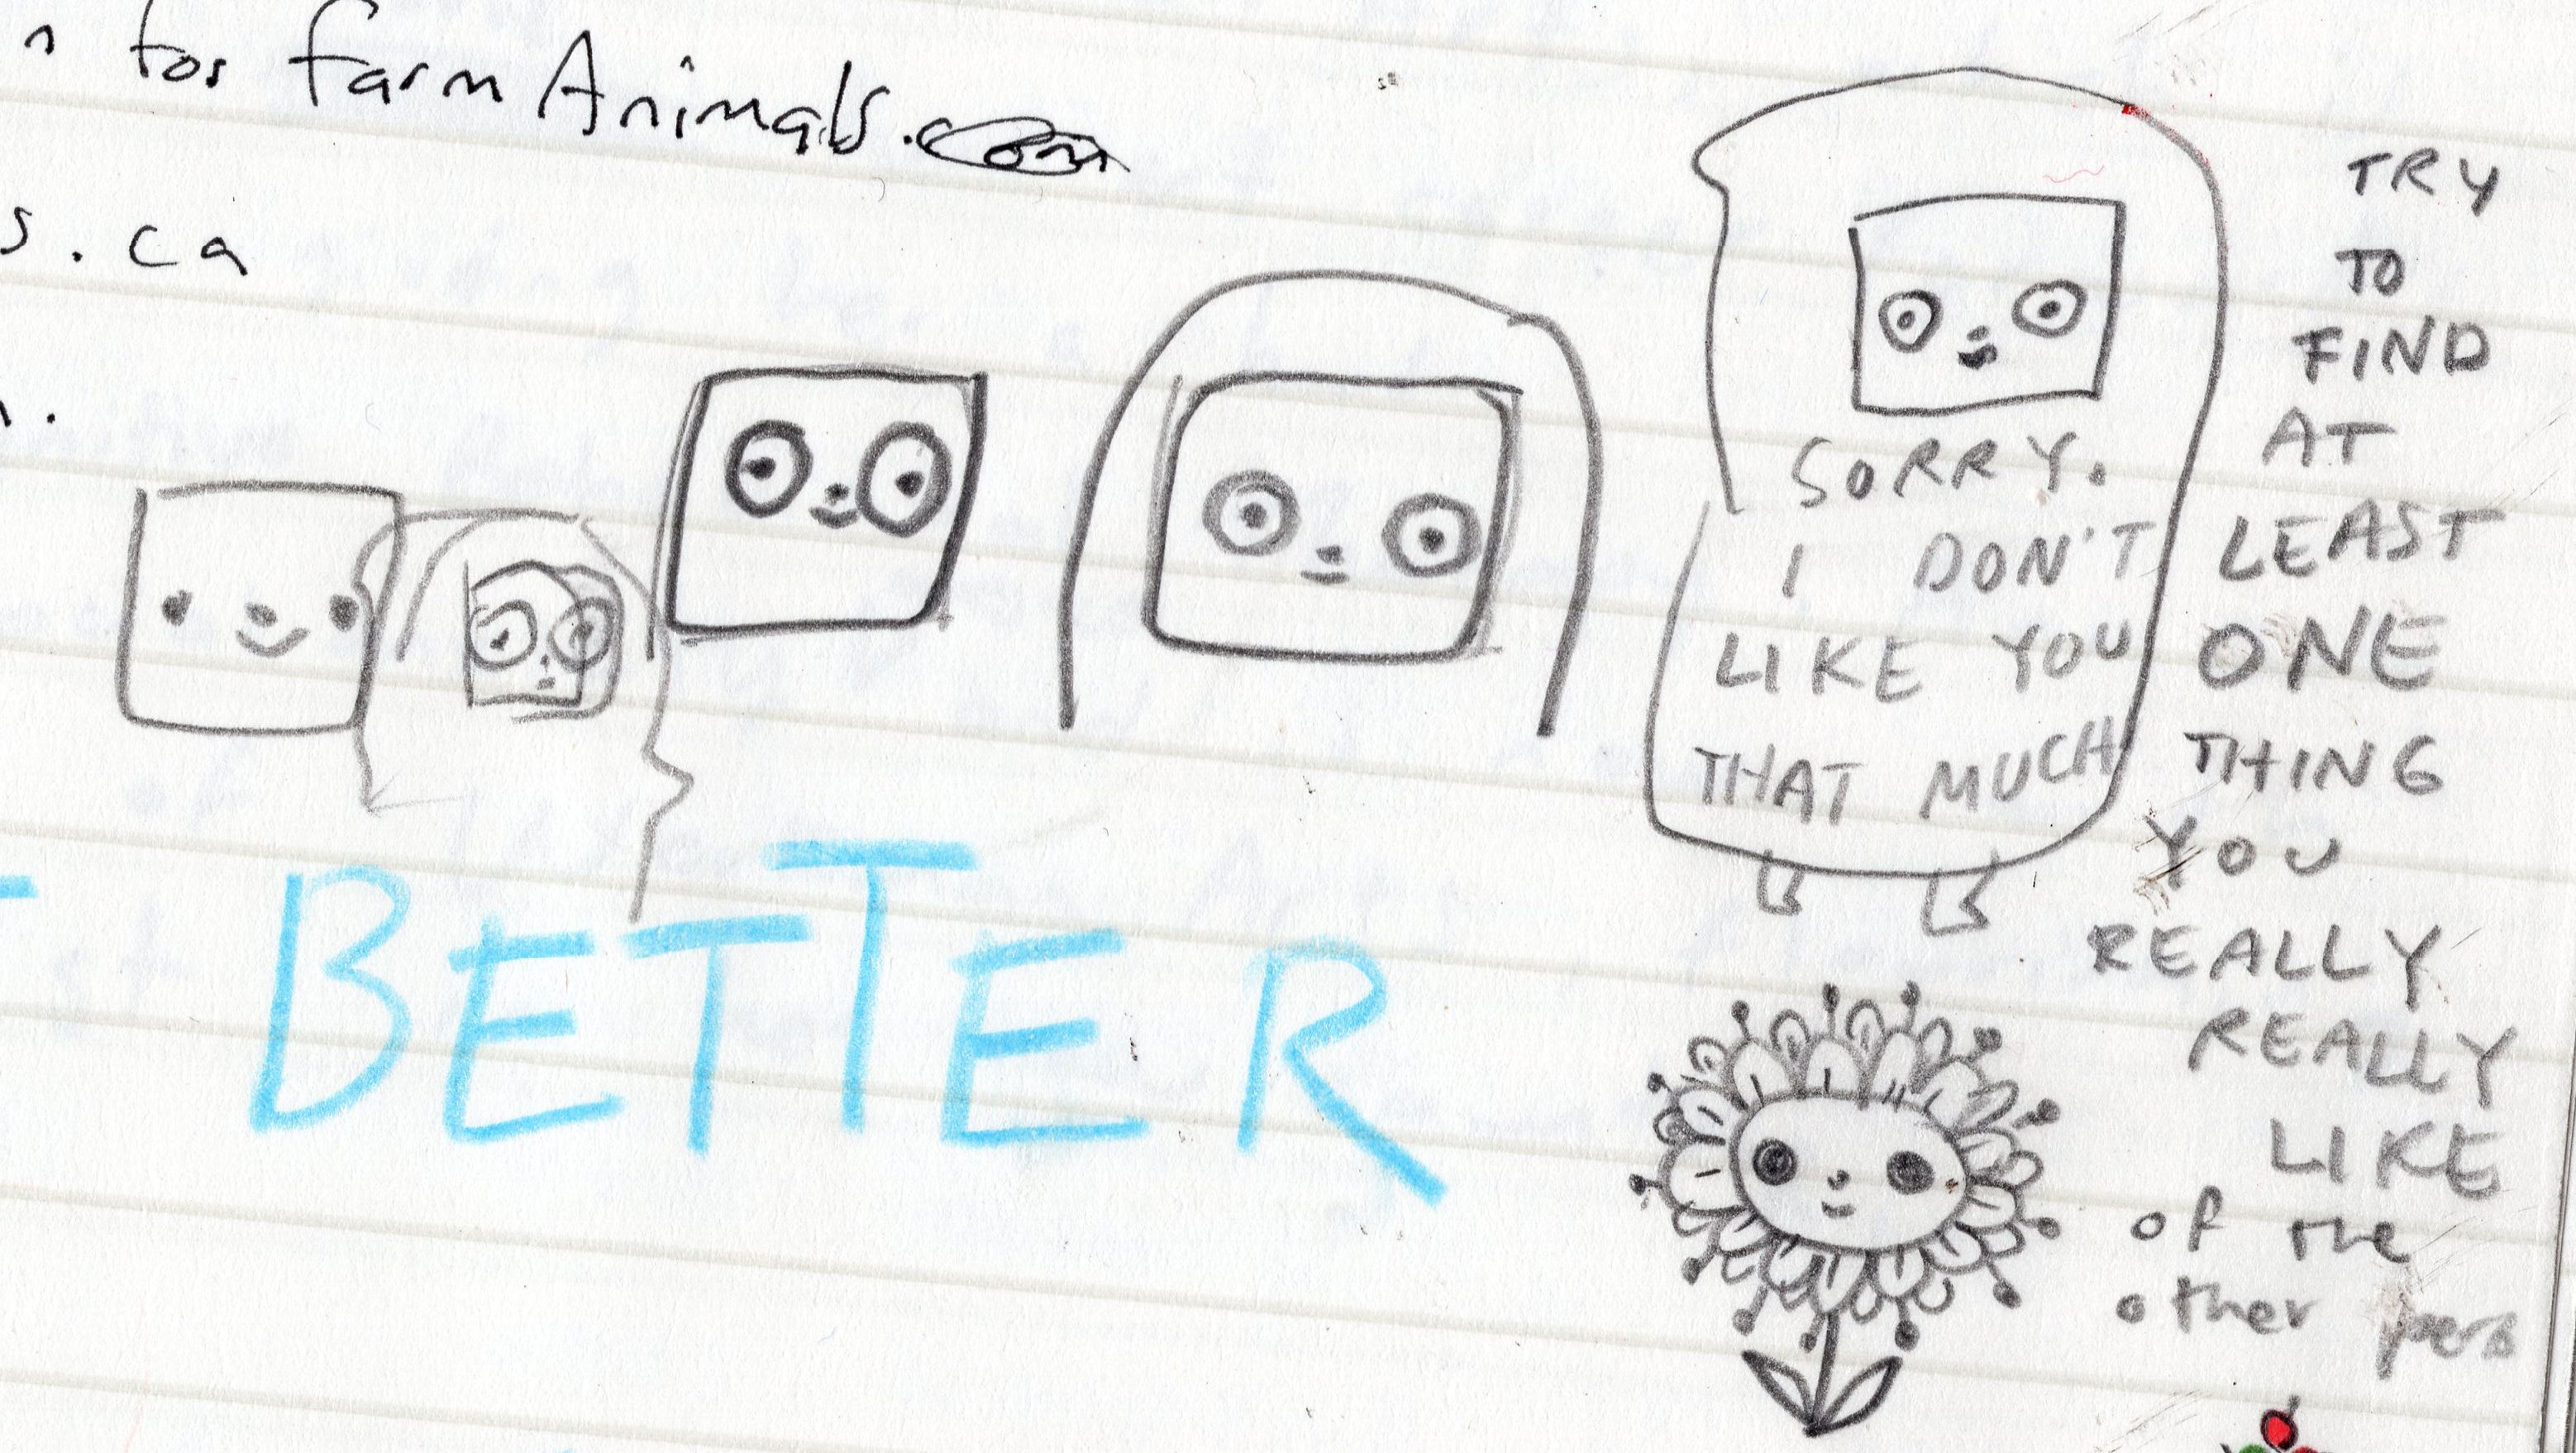 for farmAnimals.com
s.ca
SORRY.
I DON'T
LIKE YOU
THAT MUCH
TRY
TO
FIND
AT
LEAST
ONE
THING
YOU
REALLY
REALLY
LIKE
of the
other pers
BETTER